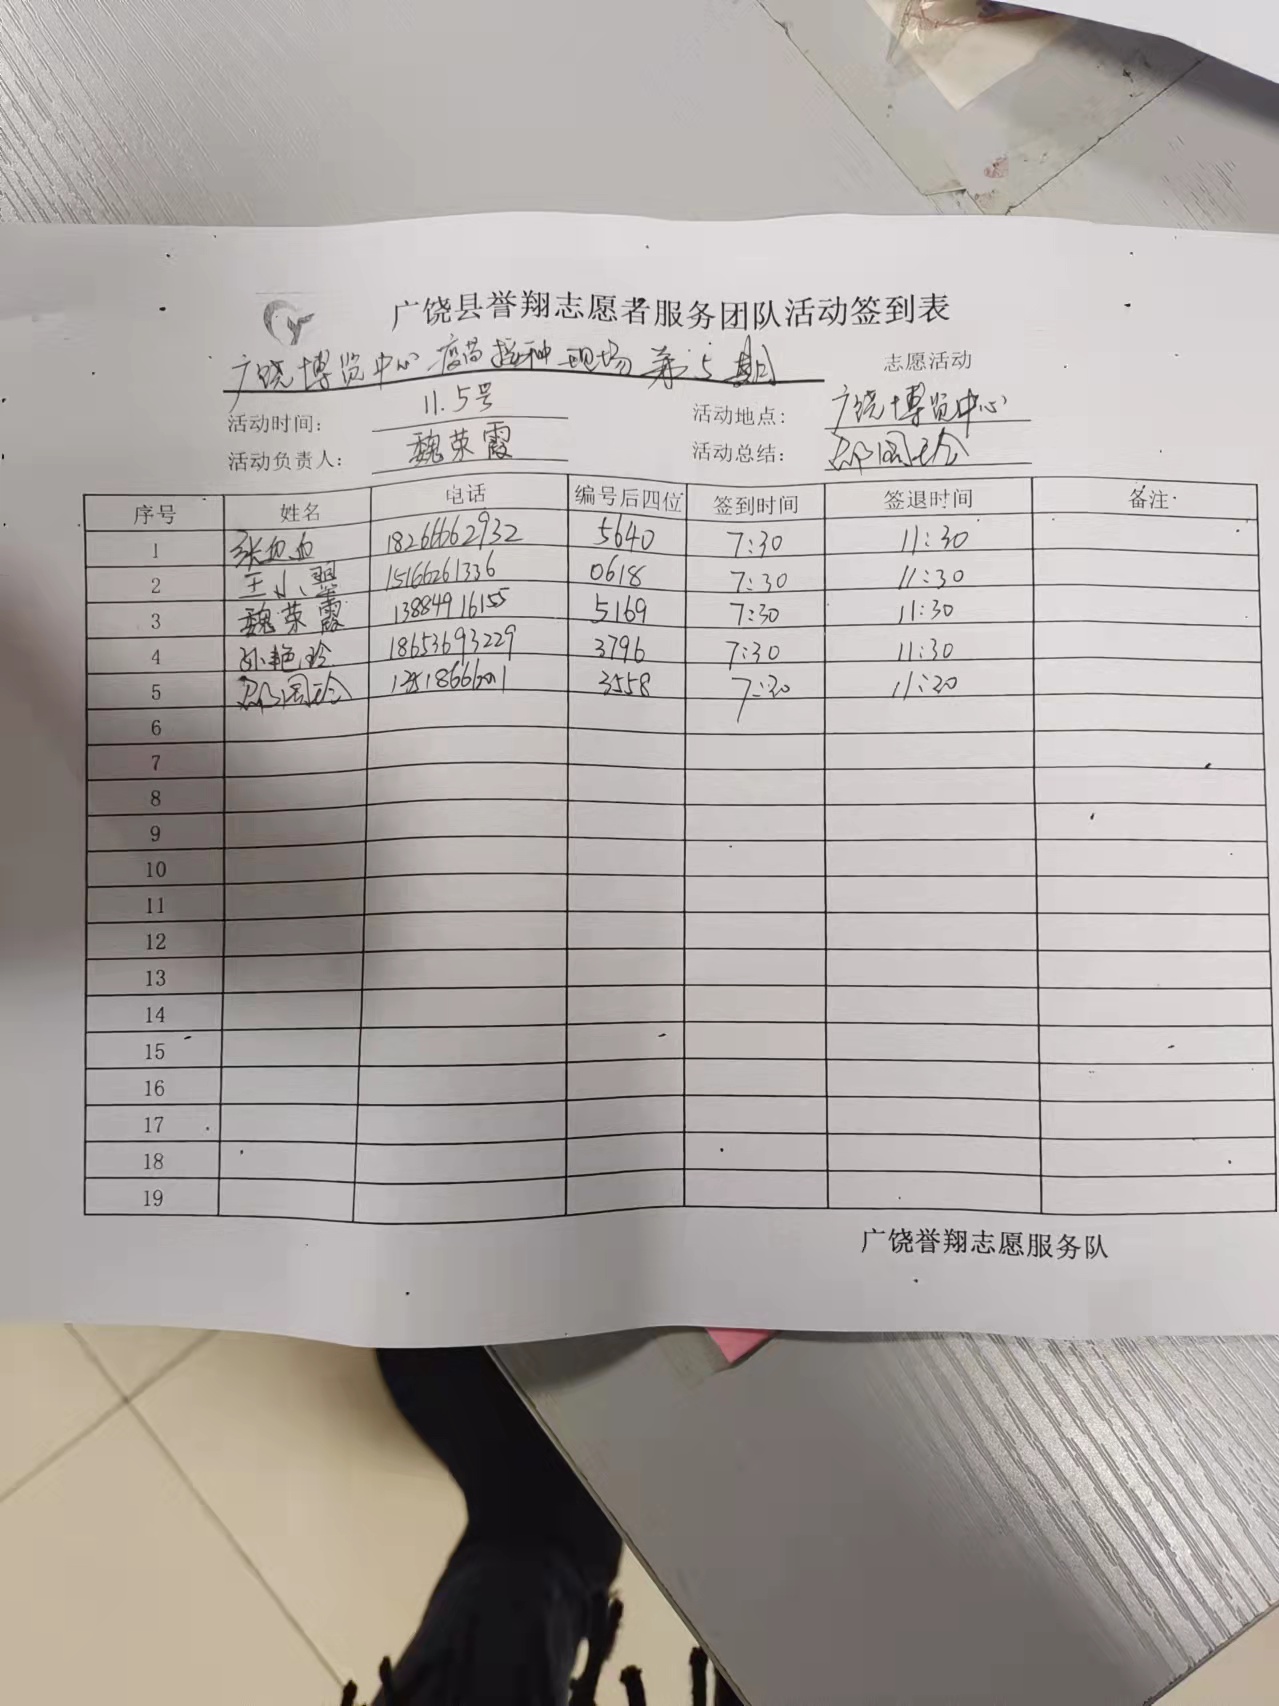 广饶县誉翔志愿者服务团队活动签到表
广饶博览中心疫苗接种现场第5期 志愿活动
活动时间: 11.5号 活动地点: 广饶博览中心
活动负责人: 魏荣霞 活动总结:
序号 姓名 电话 编号后四位 签到时间 签退时间 备注
1 18266662932 5640 7:30 11:30
2 王小翠 15166261336 0618 7:30 11:30
3 魏荣霞 13884916155 5169 7:30 11:30
4 孙艳玲 18653693229 3796 7:30 11:30
5 3558 7:30 11:30
6
7
8
9
10
11
12
13
14
15
16
17
18
19
广饶誉翔志愿服务队